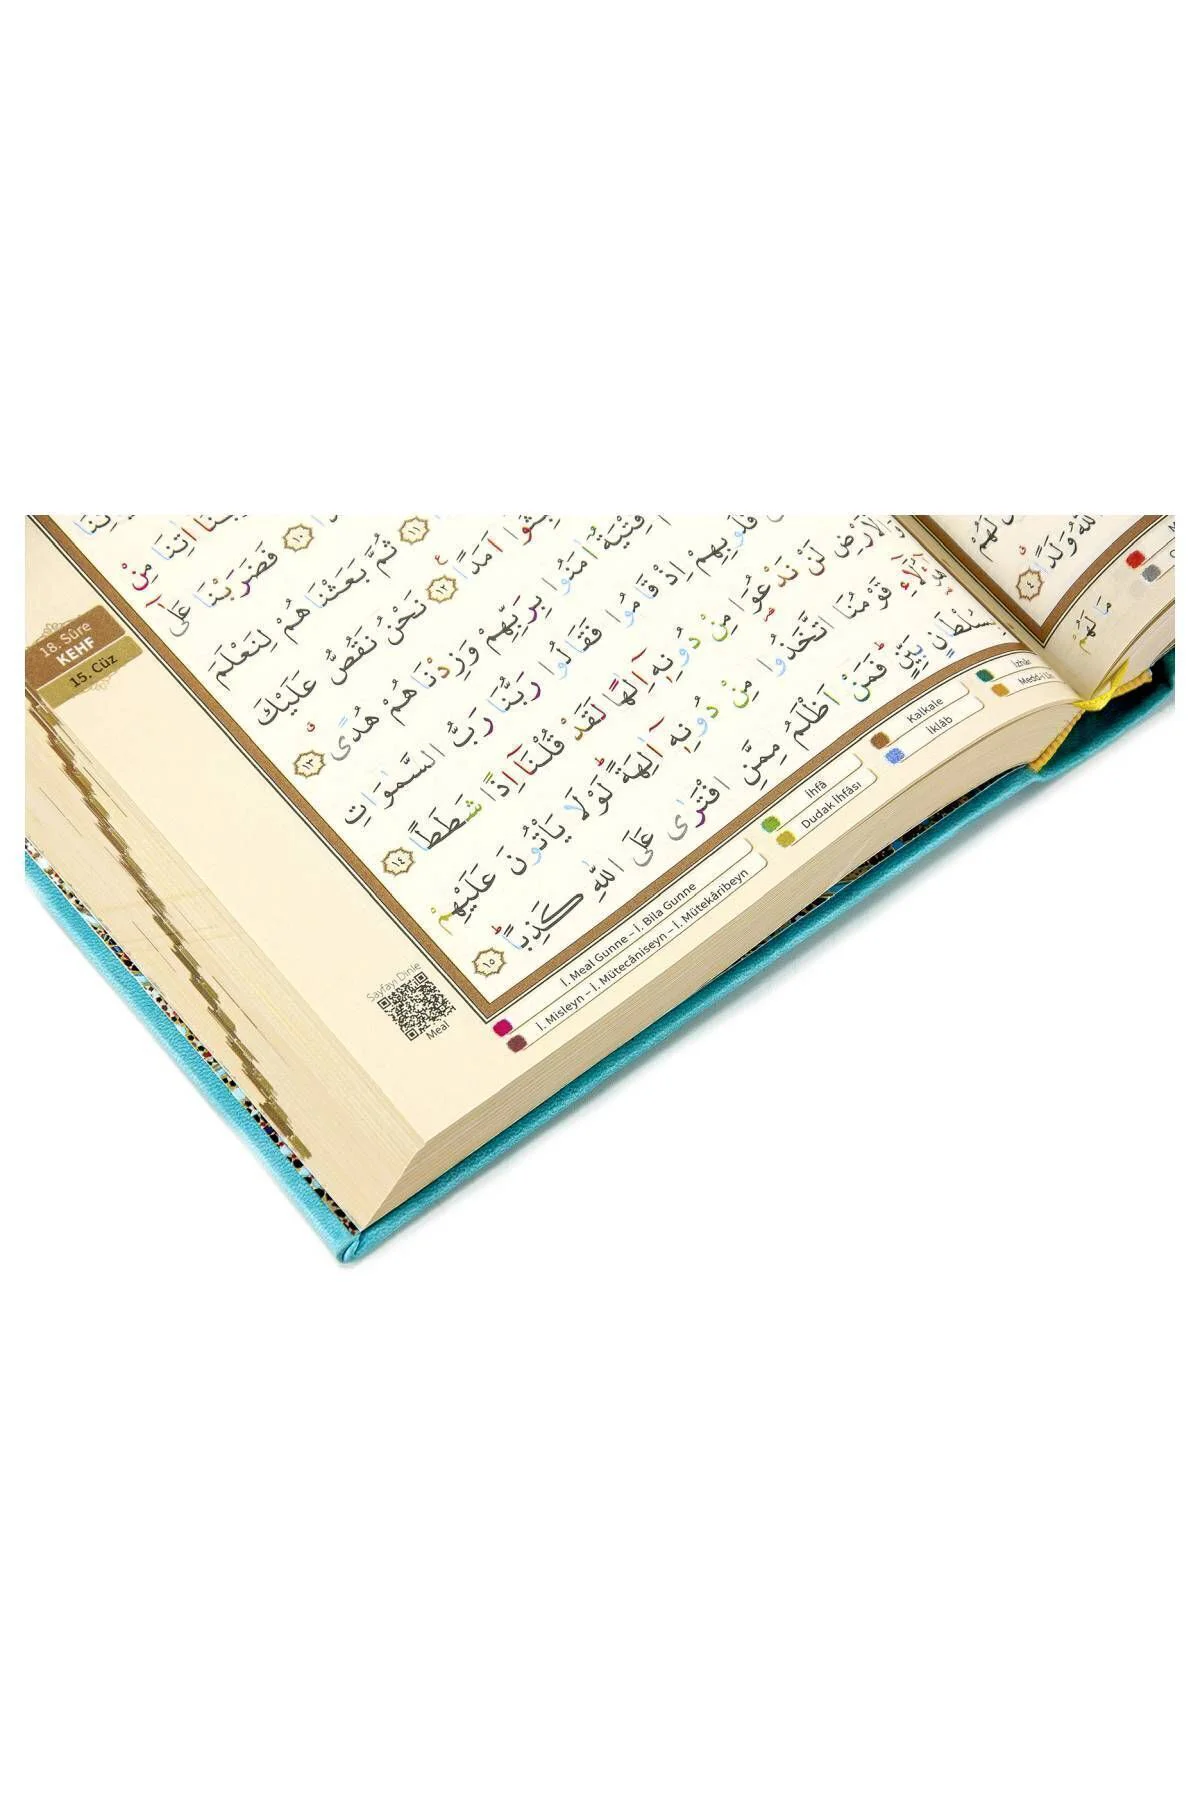 18. Sûre
KEHF
15. Cüz
اٰتِنَا مِنْ
فَضَرَبْنَا عَلٰٓى
ثُمَّ بَعَثْنَاهُمْ لِنَعْلَمَ
اَمَدًا ﴿١٢﴾ نَحْنُ نَقُصُّ عَلَيْكَ
فِتْيَةٌ اٰمَنُوا بِرَبِّهِمْ وَزِدْنَاهُمْ هُدًى ﴿١٣﴾
قُلُوبِهِمْ اِذْ قَامُوا فَقَالُوا رَبُّنَا رَبُّ السَّمٰوَاتِ
وَالْاَرْضِ لَنْ نَدْعُوَا مِنْ دُونِهٖٓ اِلٰهًا لَقَدْ قُلْنَٓا اِذًا شَطَطًا ﴿١٤﴾
قَوْمُنَا اتَّخَذُوا مِنْ دُونِهٖٓ اٰلِهَةً لَوْلَا يَأْتُونَ عَلَيْهِمْ
بِسُلْطَانٍ بَيِّنٍ فَمَنْ اَظْلَمُ مِمَّنِ افْتَرٰى عَلَى اللّٰهِ كَذِبًا ﴿١٥﴾
Sayfayı Dinle
Meal
İ. Meal Gunne – İ. Bila Gunne
İ. Misleyn – İ. Mütecâniseyn – İ. Mütekâribeyn
İhfâ
Dudak İhfâsı
Kalkale
İklâb
İzhâr
Medd-i Lîn
وَلَدًا ﴿٤﴾
مَا لَهُمْ